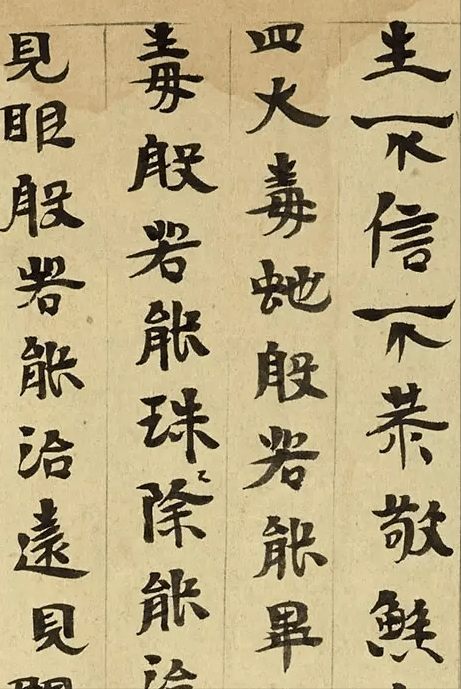 生不信不恭敬鮮
四大毒虵般若能畢
毒般若能珠除能治
見眼般若能治遠見